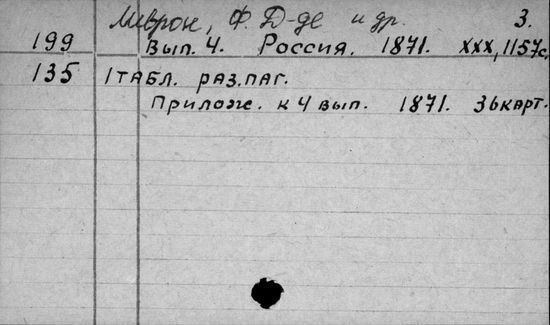 Ливрон, Ф. Д-де и др. 3.
199 Вып. 4. Россия. 1871. XXX, 1157с.
135 1 табл. раз.паг.
Прилож. к 4 вып. 1871. 36 карт.